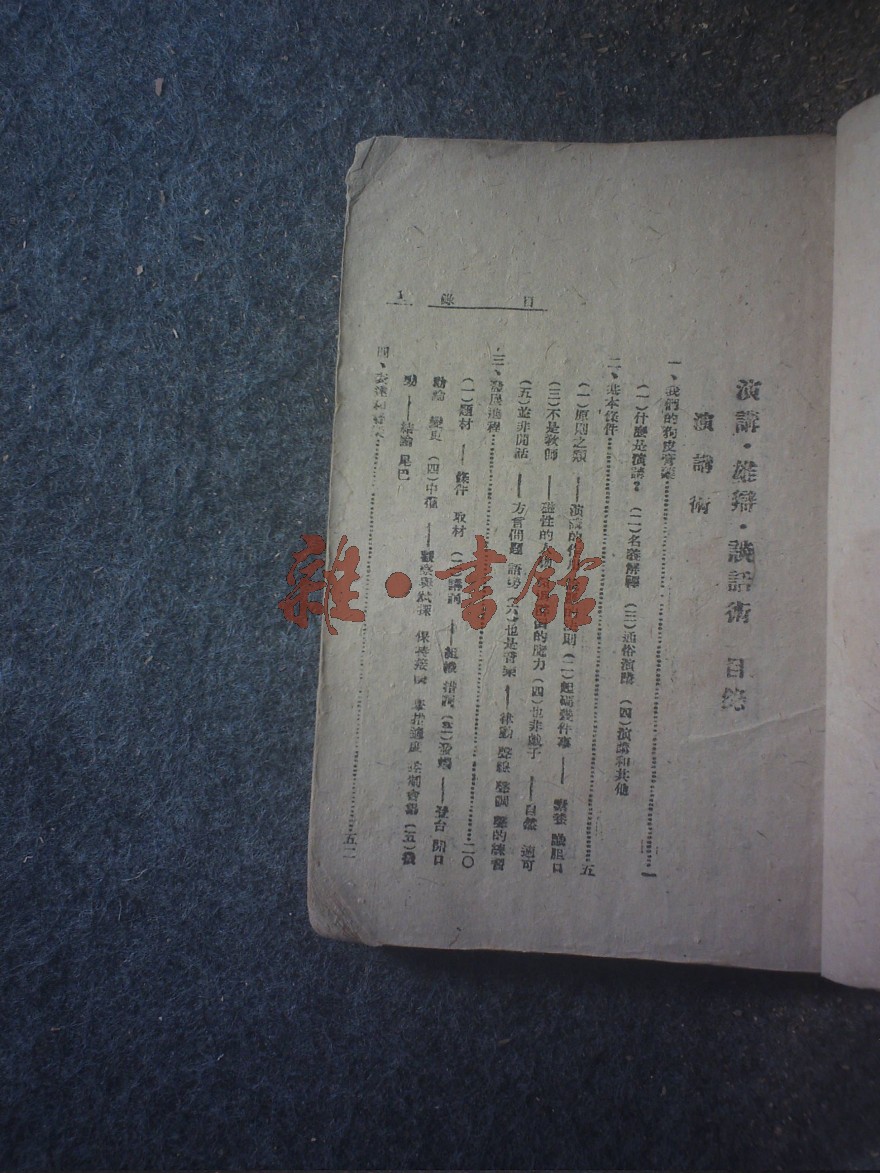 演講·雄辯·談話術 目錄
演講術
一、我們的狗皮膏藥 一
(一)什麼是演講? (二)名義解釋 (三)通俗演講 (四)演講和其他
二、基本條件 五
(一)原則之類——演講的 則 (二)起碼幾件事—— 膽 口
(三)不是教師——理性的 的魔力 (四)也非戲子——自然 適可
(五)並非閒話——方言問題 語 (六)也是音樂——律動 聲 聲調 聲的練習
三、發展進程 二〇
(一)題材——條件 取材 (二)講詞——組織 措詞 (三)發端——登台 開口
勸諭 變更 (四)中 ——觀察與試探 保持 適度 控制會場 (五)激
動——結論 尾巴
四、表達和 五二
目錄
1
雜·書館